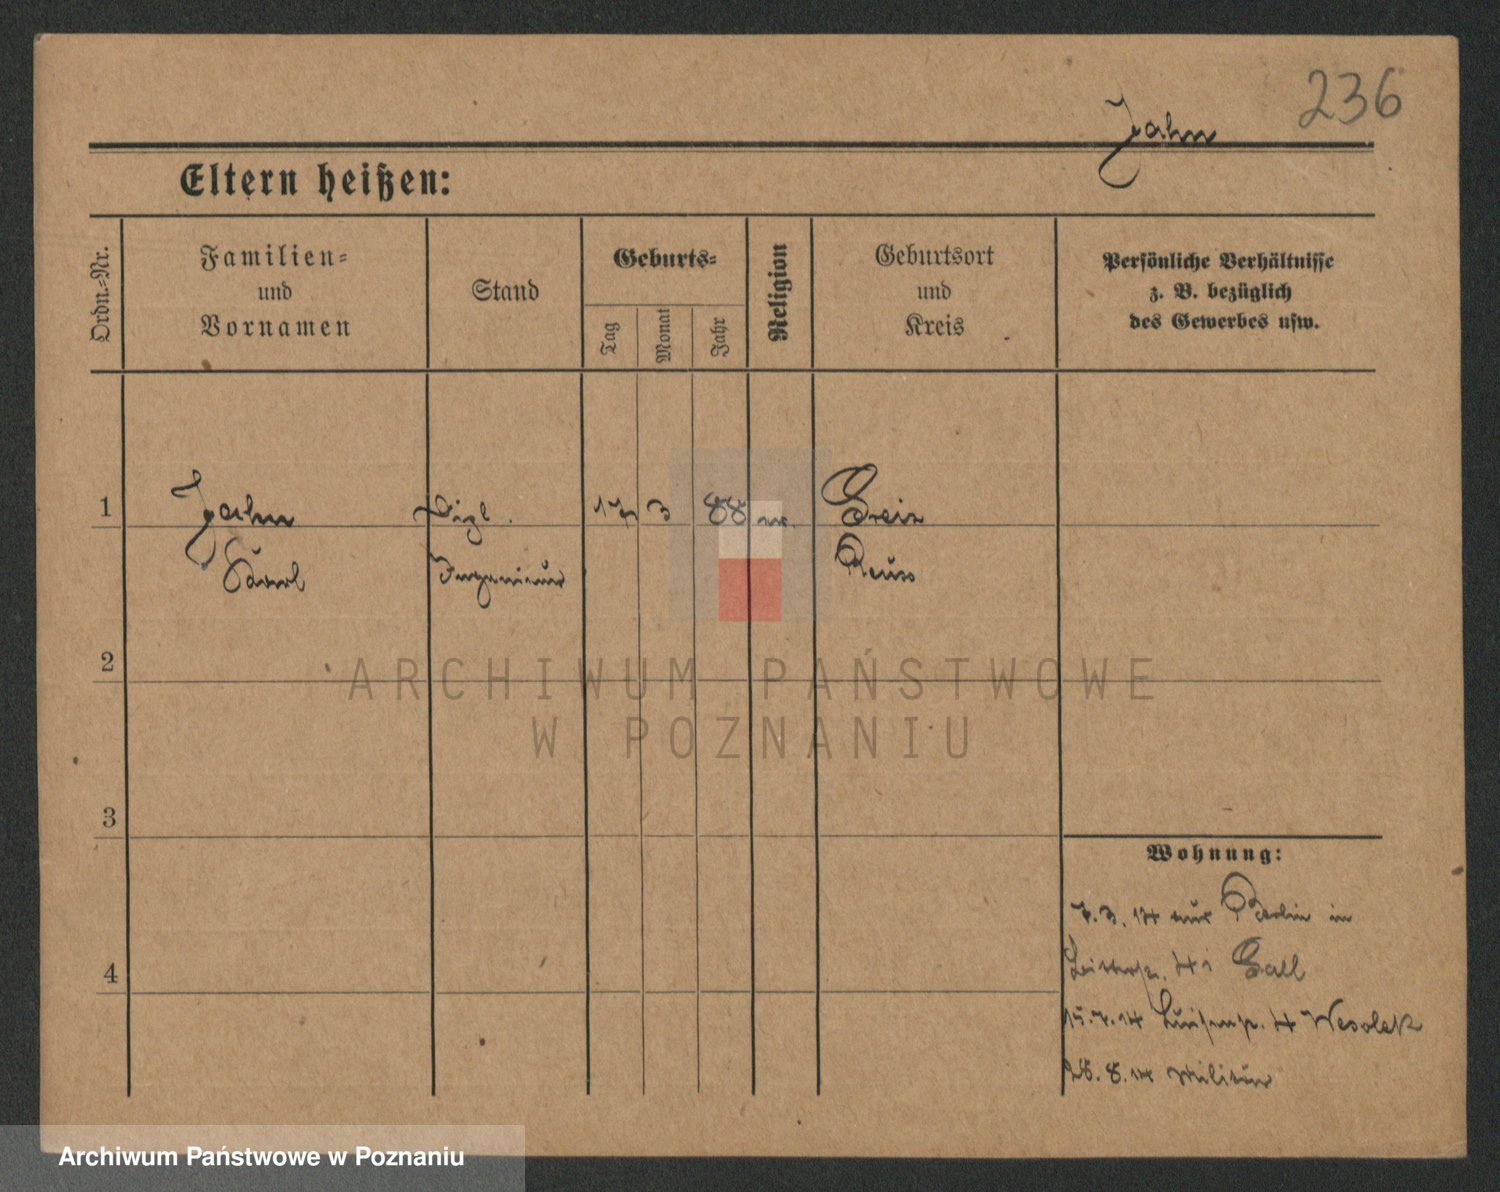 236
Jahn
Eltern heißen:
Ordn.-Nr.
Familien-
und
Vornamen
Stand
Geburts-
Tag
Monat
Jahr
Religion
Geburtsort
und
Kreis
Persönliche Verhältnisse
z. B. bezüglich
des Gewerbes usw.
1
Jahn
Dipl.
17
3
88
ev.
Greiz
Karl
Ingenieur
Reuss
2
ARCHIWUM PAŃSTWOWE
W POZNANIU
3
Wohnung:
7.3.14 aus Berlin in
4
Gall
15.7.14 Luisenstr. 4 Wesolek
28.8.14 Militär
Archiwum Państwowe w Poznaniu